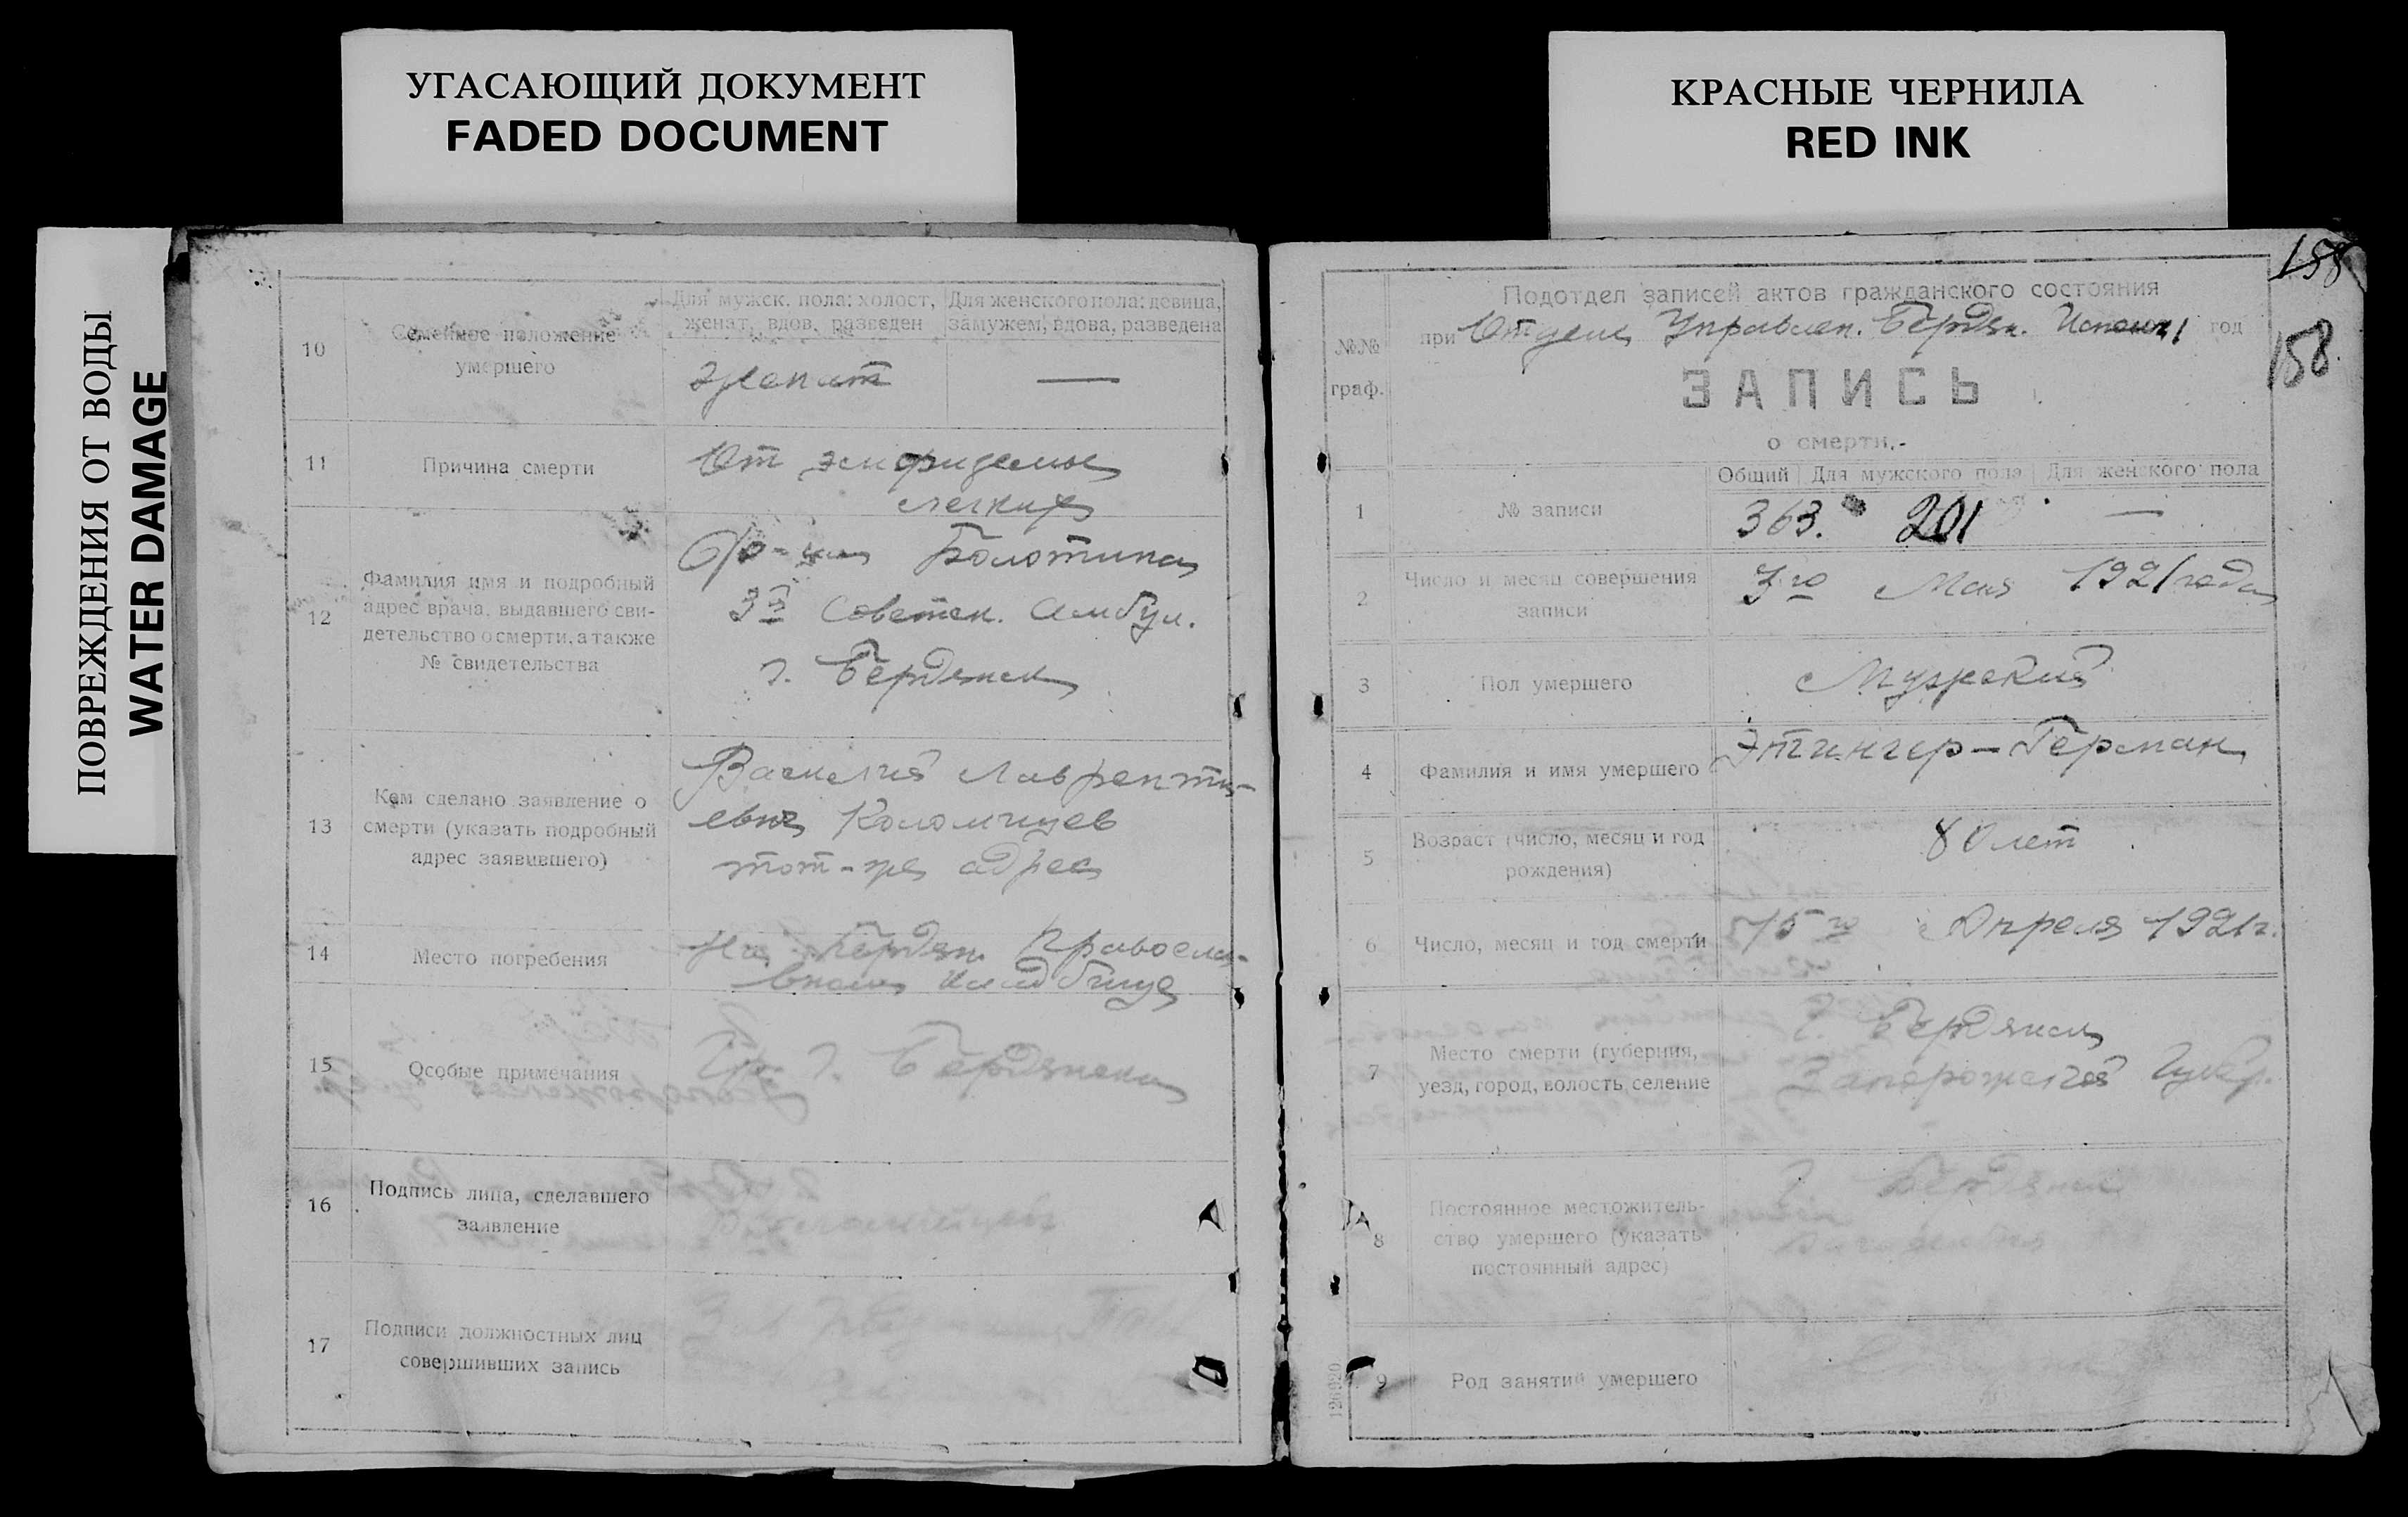 УГАСАЮЩИЙ ДОКУМЕНТ
FADED DOCUMENT
КРАСНЫЕ ЧЕРНИЛА
RED INK
ПОВРЕЖДЕНИЯ ОТ ВОДЫ
WATER DAMAGE
10
Семейное положение
умершего
Для мужск. пола: холост,
женат, вдов, разведен
Для женского пола: девица,
замужем, вдова, разведена
женат
—
11
Причина смерти
От эмфиземы
легких
12
Фамилия имя и подробный
адрес врача, выдавшего сви-
детельство о смерти, а также
№ свидетельства
Болотина
3я Советск. Амбул.
г. Бердянск
13
Кем сделано заявление о
смерти (указать подробный
адрес заявившего)
Василий Лавренти-
евич Коломийцев
тот-же адрес
14
Место погребения
На Бердян. Правосла-
вном кладбище
15
Особые примечания
Гр. г. Бердянска
16
Подпись лица, сделавшего
заявление
17
Подписи должностных лиц
совершивших запись
158
158.
№№
граф.
Подотдел записей актов гражданского состояния
при Отделе Управлен. Бердян. год
ЗАПИСЬ
о смерти.-
1
№ записи
Общий
Для мужского пола
Для женского пола
363.
201
—
2
Число и месяц совершения
записи
3го Мая 1921 года
3
Пол умершего
Мужской
4
Фамилия и имя умершего
Этингер - Герман
5
Возраст (число, месяц и год
рождения)
80 лет
6
Число, месяц и год смерти
15го Апреля 1921 г.
7
Место смерти (губерния,
уезд, город, волость, селение
г. Бердянск
Запорожской Губер.
8
Постоянное местожитель-
ство умершего (указать
постоянный адрес)
г. Бердянск
9
Род занятий умершего
126920